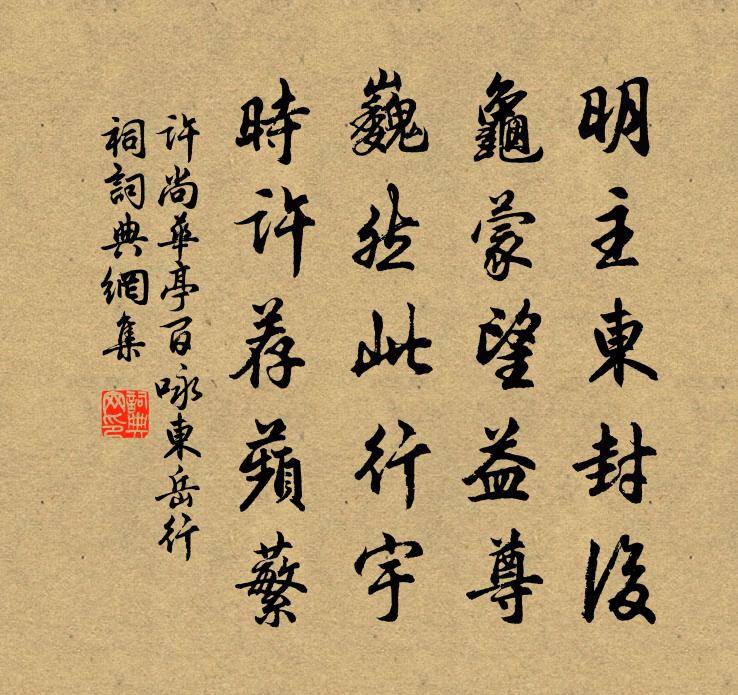 明主東封後
龜蒙望益尊
巍然此行宇
時許荐蘋蘩
許尚華亭百咏東岳行
祠詞典網集
詞典网印